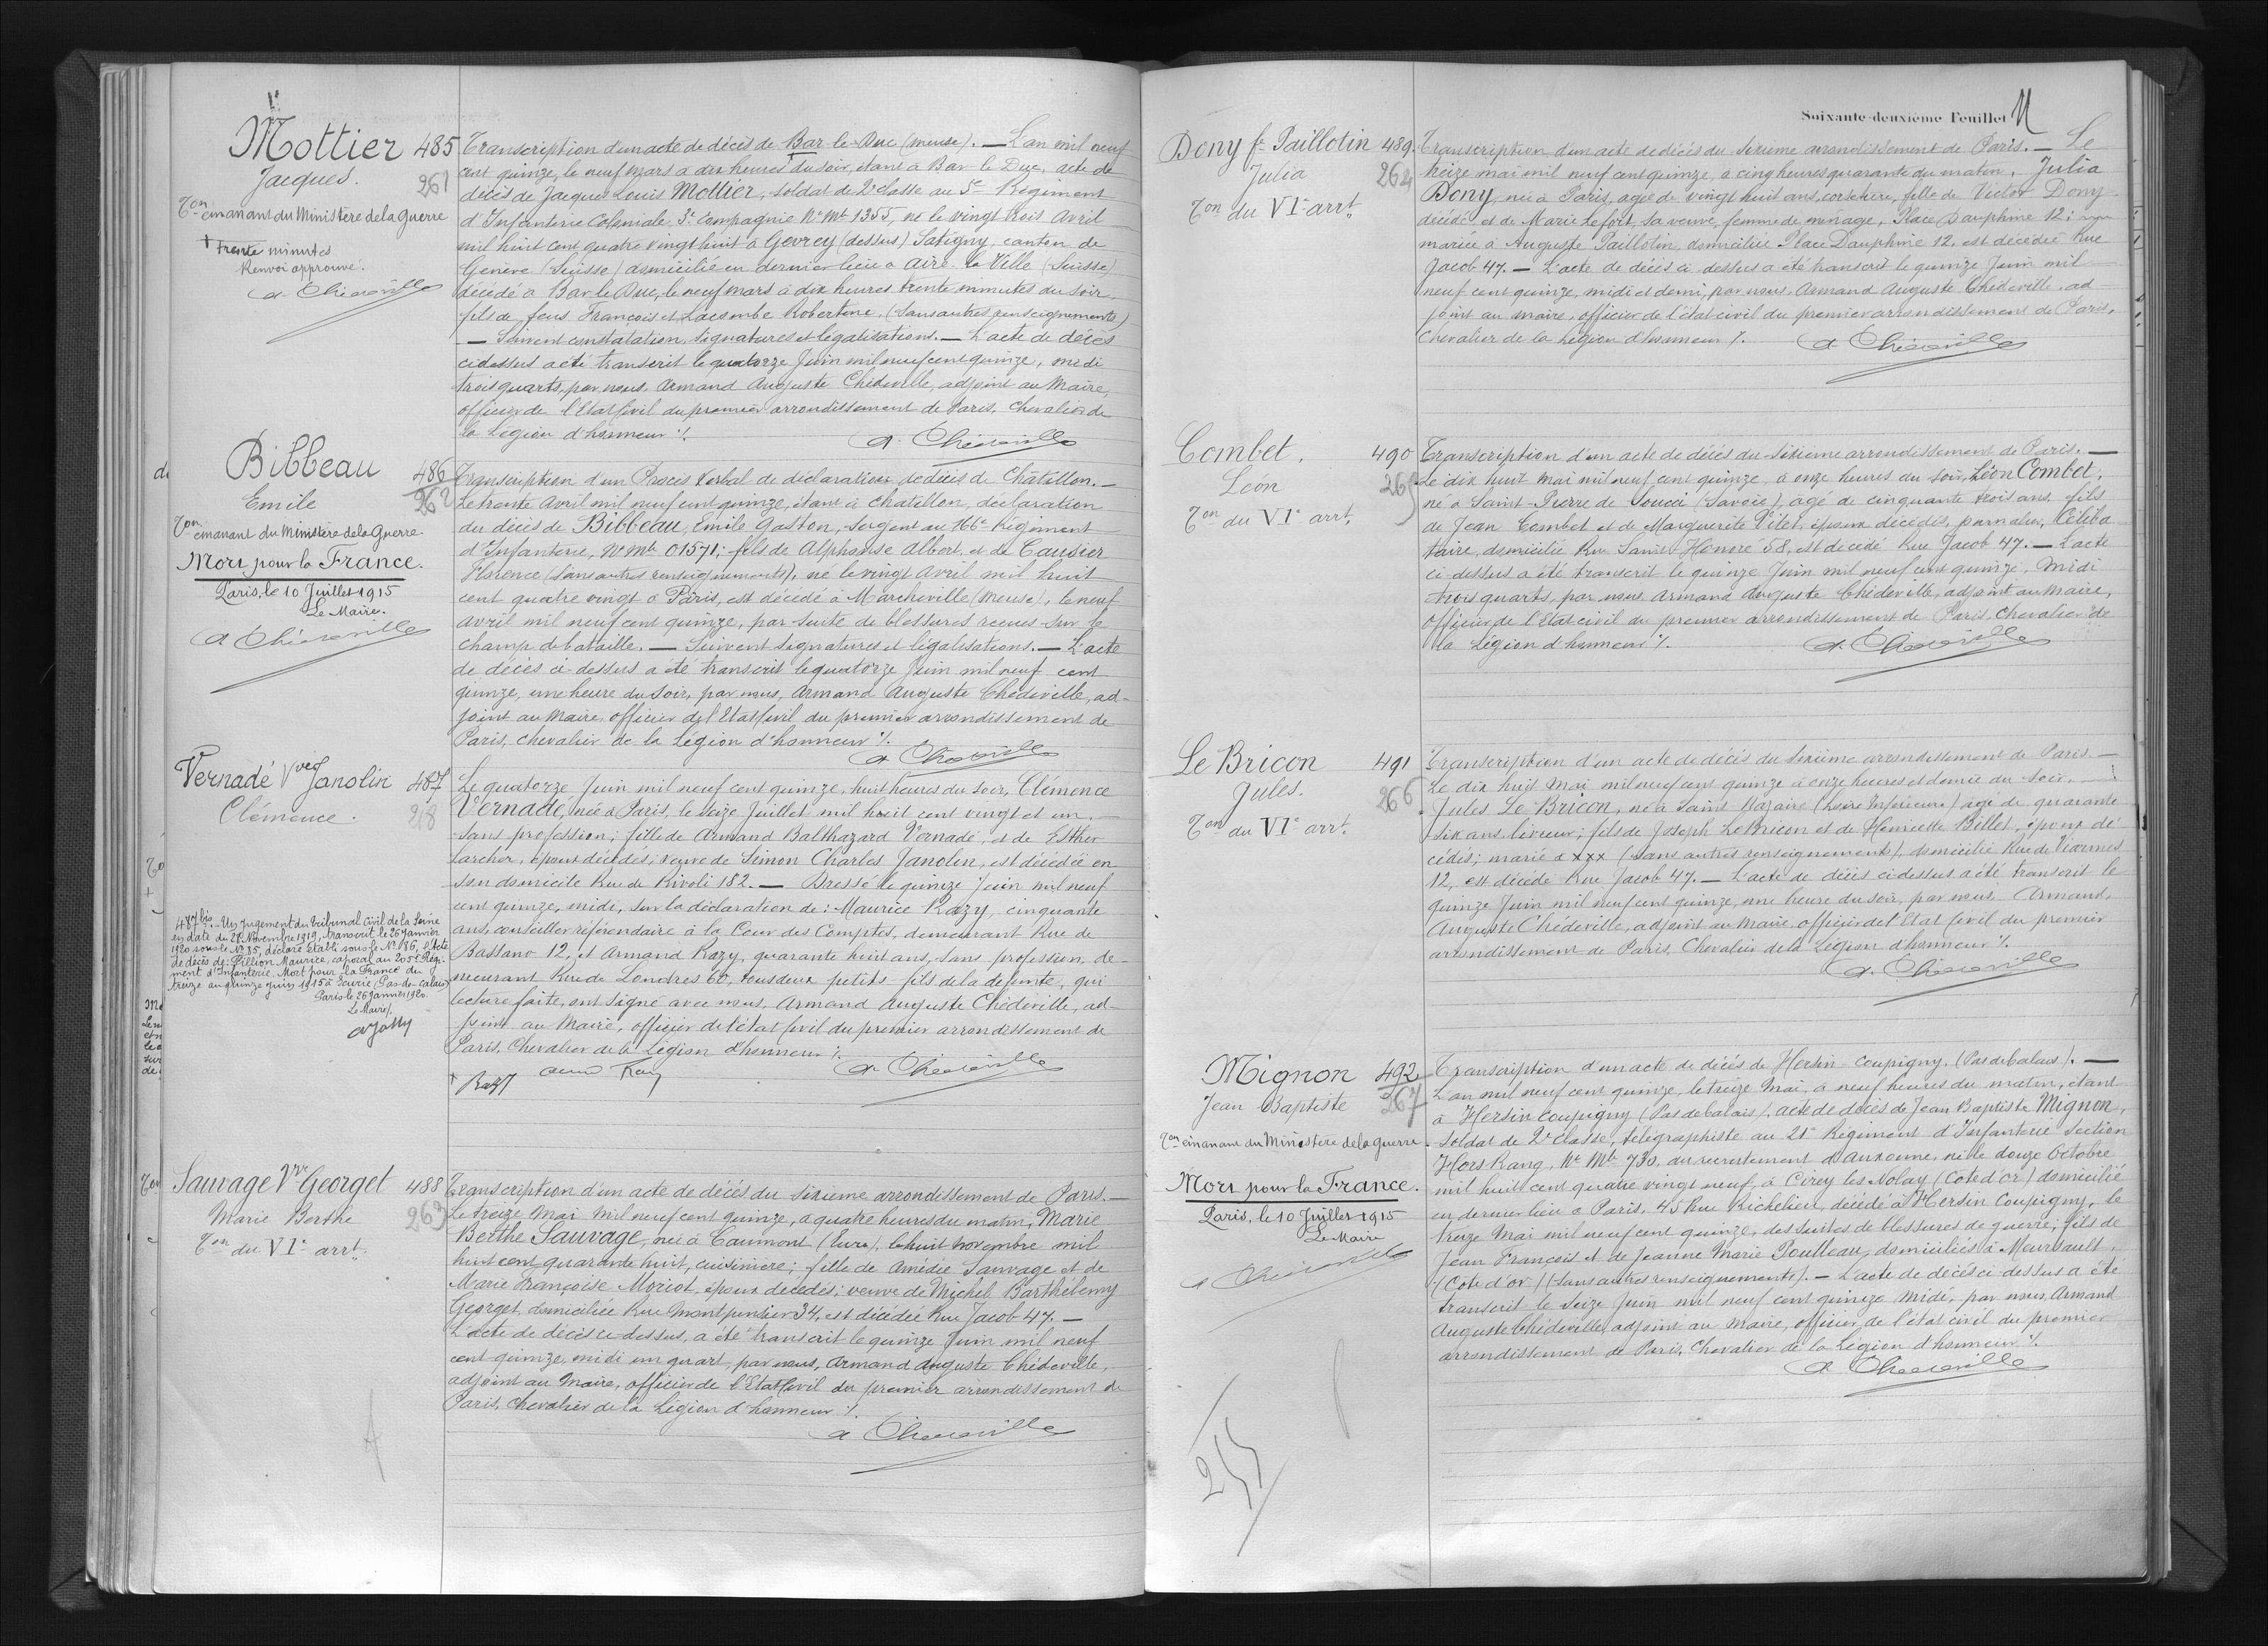 Mottier 485
Jacques. 261
Ton émanant du Ministère de la Guerre
+ trente minutes
Renvoi approuvé.
A. Chédeville
Transcription d'un acte de décès de Bar-le-Duc (Meuse). — L'an mil neuf
cent quinze, le neuf mars à dix heures du soir, étant à Bar le Duc, acte de
décès de Jacques Louis Mottier, soldat de 2e classe au 5e Régiment
d'Infanterie Coloniale 3e Compagnie No Mle 1355, né le vingt trois Avril
mil huit cent quatre vingt huit à Gevrey (dessus) Satigny, canton de
Genève (Suisse) domicilié en dernier lieu à Aire-la Ville (Suisse)
décédé à Bar le Duc, le neuf mars à dix heures trente minutes du soir,
fils de feus François et Lacombe Robertine, (sans autres renseignements)
— Suivent constatation, signatures et légalisations. — L'acte de décès
ci dessus a été transcrit le quatorze Juin mil neuf cent quinze, midi
trois quarts, par nous, Armand Auguste Chédeville, adjoint au Maire,
officier de l'Etat Civil du premier arrondissement de Paris, Chevalier de
la Légion d'honneur ./.
A. Chédeville
Bibbeau 486
Emile 262
Ton émanant du Ministère de la Guerre.
Mort pour la France.
Paris, le 10 Juillet 1915
Le Maire.
A. Chédeville
Transcription d'un Procès Verbal de déclaration de décès de Châtillon. —
Le trente Avril mil neuf cent quinze, étant à Chatillon, déclaration
du décès de Bibbeau, Emile Gaston, Sergent au 166e Régiment
d'Infanterie, No Mle 01571; fils de Alphonse Albert, et de Causier
Florence (sans autres renseignements), né le vingt Avril mil huit
cent quatre vingt à Paris, est décédé à Marcheville (Meuse), le neuf
avril mil neuf cent quinze, par suite de blessures reçues sur le
champ de bataille. — Suivent signatures et légalisations. — L'acte
de décès ci-dessus a été transcrit le quatorze Juin mil neuf cent
quinze, une heure du soir, par nous, Armand Auguste Chédeville, ad-
joint au Maire, officier de l'Etat Civil du premier arrondissement de
Paris, Chevalier de la Légion d'honneur ./.
A. Chédeville
Vernadé Vve Janolin 487
Clémence. 218
Le quatorze Juin mil neuf cent quinze, huit heures du soir, Clémence
Vernadé, née à Paris, le seize Juillet mil huit cent vingt et un, —
sans profession; fille de Armand Balthazard Vernadé, et de Esther
Larcher, époux décédés; veuve de Simon Charles Janolin, est décédée en
son domicile Rue de Rivoli 182. — Dressé le quinze Juin mil neuf
cent quinze, midi, sur la déclaration de: Maurice Razy, cinquante
ans, conseiller référendaire à la Cour des Comptes, demeurant Rue de
Bassano 12, et Armand Razy, quarante huit ans, sans profession, de-
meurant Rue de Londres 60, tous deux petits-fils de la défunte, qui
lecture faite, ont signé avec nous, Armand Auguste Chédeville, ad-
joint au Maire, officier de l'état Civil du premier arrondissement de
Paris, Chevalier de la Légion d'honneur ./.
A. Chédeville
Razy
487 bis — Un jugement du Tribunal Civil de la Seine
en date du 28 Novembre 1919, transcrit le 26 Janvier
1920 sous le No 85, déclare établi sous le No 186, l'Acte
de décès de: Pillion Maurice, caporal au 205e Régi-
ment d'Infanterie. Mort pour la France du
treize au quinze juin 1915 à Ecurie (Pas-de-Calais)
Paris le 26 Janvier 1920.
Le Maire/.
Sauvage Vve Georget 488
Marie Berthe 263
Ton du VIe arrt.
Transcription d'un acte de décès du sixième arrondissement de Paris. —
Le treize Mai Mil neuf cent quinze, à quatre heures du matin, Marie
Berthe Sauvage, née à Caumont (Eure), le huit novembre mil
huit cent quarante huit, cuisinière; fille de Amédée Sauvage et de
Marie Françoise Moriot, époux décédés; veuve de Michel Barthélemy
Georget, domiciliée Rue Montpensier 34, est décédée Rue Jacob 47. —
L'acte de décès ci-dessus, a été transcrit le quinze Juin mil neuf
cent quinze, midi un quart, par nous, Armand Auguste Chédeville,
adjoint au Maire, officier de l'Etat Civil du premier arrondissement de
Paris, Chevalier de la Légion d'honneur ./.
A. Chédeville
Soixante-deuxième Feuillet
Dony fe Paillotin 489.
Julia 264
Ton du VIe arrt.
Transcription d'un acte de décès du sixième arrondissement de Paris. — Le
treize mai mil neuf cent quinze, à cinq heures quarante du matin, Julia
Dony, née à Paris, agée de vingt huit ans, corsetière, fille de Victor Dony
décédé et de Marie Lefort, sa veuve, femme de ménage, Place Dauphine 12;
mariée à Auguste Paillotin, domiciliée Place Dauphine 12, est décédée Rue
Jacob 47. — L'acte de décès ci-dessus a été transcrit le quinze Juin mil
neuf cent quinze, midi et demi, par nous, Armand Auguste Chédeville, ad-
joint au maire, officier de l'état civil du premier arrondissement de Paris,
Chevalier de la Légion d'honneur ./.
A. Chédeville
Combet. 490
Léon 265
Ton du VIe arrt.
Transcription d'un acte de décès du sixième arrondissement de Paris. —
Le dix huit Mai mil neuf cent quinze, à onze heures du soir, Léon Combet,
né à Saint-Pierre de Soucci (Savoie), agé de cinquante trois ans, fils
de Jean Combet et de Marguerite Pilet, époux décédés, journalier, Céliba
taire, domicilié Rue Saint-Honoré 58, est décédé Rue Jacob 47. — L'acte
ci-dessus a été transcrit le quinze Juin mil neuf cent quinze, midi
trois quarts, par nous Armand Auguste Chédeville, adjoint au Maire,
officier de l'Etat civil du premier arrondissement de Paris, Chevalier de
la Légion d'honneur ./.
A. Chédeville
Le Bricon 491
Jules. 266
Ton du VIe arrt.
Transcription d'un acte de décès du sixième arrondissement de Paris —
Le dix huit Mai mil neuf cent quinze à onze heures et demie du soir, —
Jules Le Bricon, né à Saint Nazaire (Loire Inférieure) agé de quarante
six ans, livreur; fils de Joseph Le Bricon et de Henriette Billet, époux dé-
cédés; marié à xxx (sans autres renseignements), domicilié Rue de Viarmes
12, est décédé Rue Jacob 47. — L'acte de décès ci dessus a été transcrit le
quinze Juin mil neuf cent quinze, une heure du soir, par nous, Armand,
Auguste Chédeville, adjoint au Maire, officier de l'Etat Civil du premier
arrondissement de Paris, Chevalier de la Légion d'honneur ./.
A. Chédeville
Mignon 492
Jean-Baptiste 267
Ton émanant du Ministère de la Guerre.
Mort pour la France.
Paris, le 10 Juillet 1915
Le Maire
A. Chédeville
Transcription d'un acte de décès de Hersin-Coupigny. (Pas de Calais). —
L'an mil neuf cent quinze, le treize Mai, à neuf heures du matin, étant
à Hersin Coupigny (Pas de Calais), acte de décès de Jean Baptiste Mignon,
soldat de 2e classe, télégraphiste au 21e Régiment d'Infanterie Section
Hors Rang, No Mle 730, du recrutement d'Auxonne, né le douze Octobre
mil huit cent quatre vingt neuf, à Cirey les Nolay (Cote d'or) domicilié
en dernier lieu à Paris, 45 Rue Richelieu, décédé à Hersin Coupigny, le
treize Mai mil neuf cent quinze, des suites de blessures de guerre; fils de
Jean François et de Jeanne Marie Poulleau, domiciliés à Meursault,
(Cote d'or) (sans autres renseignements). — L'acte de décès ci-dessus a été
transcrit le seize Juin mil neuf cent quinze midi, par nous, Armand
Auguste Chédeville, adjoint au Maire, officier de l'état civil du premier
arrondissement de Paris, Chevalier de la Légion d'honneur ./.
A. Chédeville